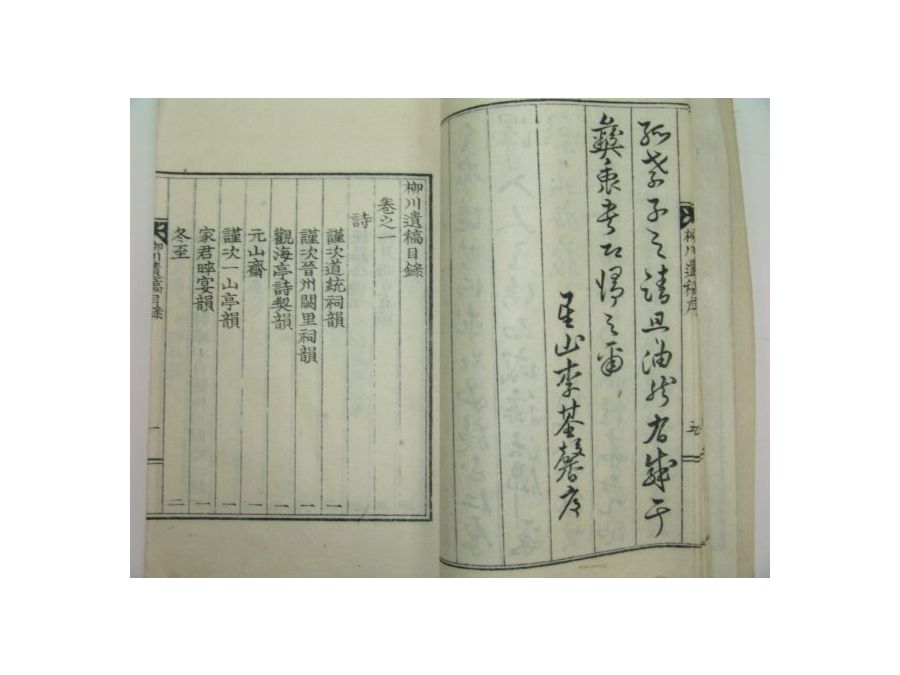 柳川遺稿序 五
子之請且油然有感于
彝衷書以歸之爾
星山李基馨序
柳川遺稿目錄
卷之一
詩
謹次道統祠韻 一
謹次晉州闕里祠韻 一
觀海亭詩契韻 一
元山齋 一
謹次一山亭韻 一
家君晬宴韻 一
冬至 二
柳川遺稿目錄 一